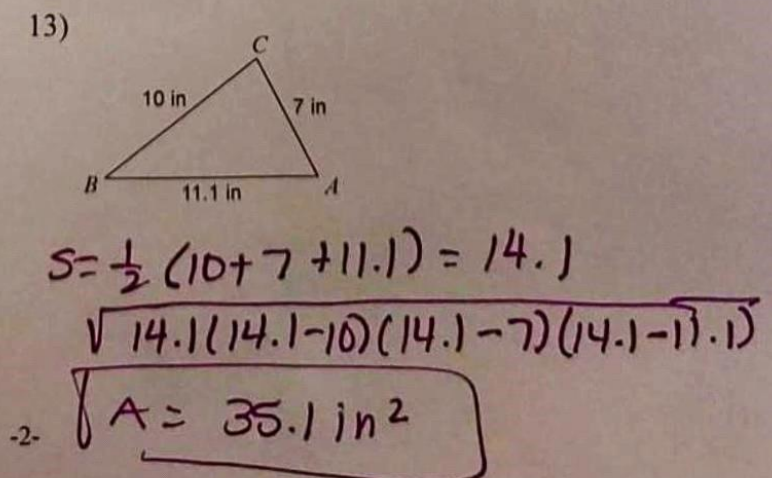 13)
C
10 in
7 in
B
A
11.1 in
S = 1/2 (10 + 7 + 11.1) = 14.1
√14.1(14.1-10)(14.1-7)(14.1-11.1)
A = 35.1 in²
-2-